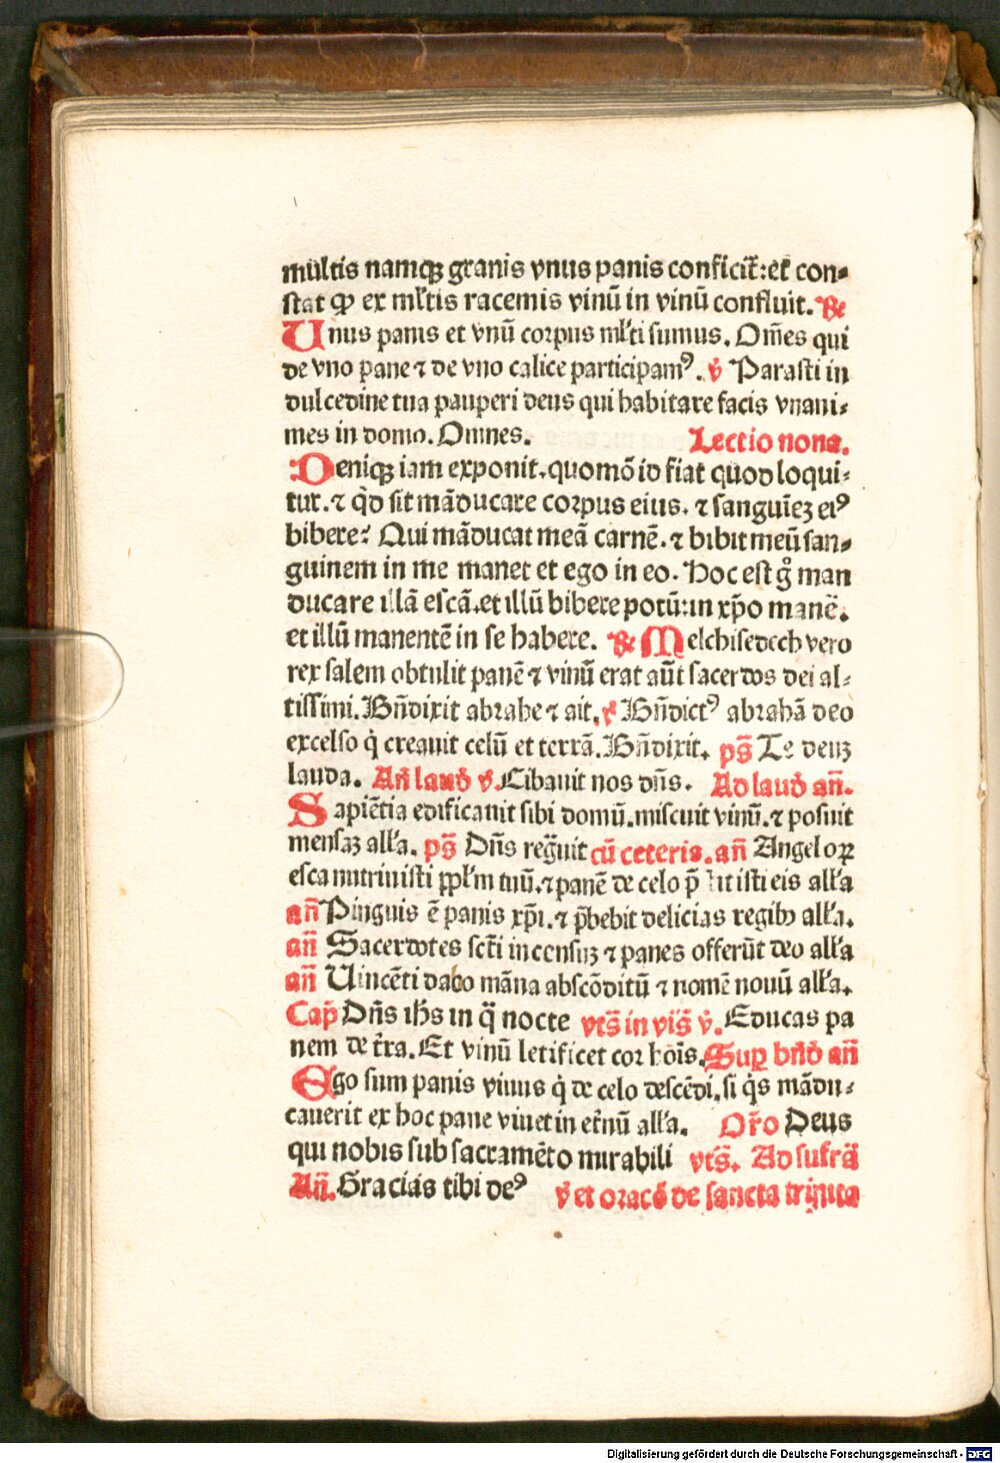 multis namqꝫ granis vnus panis conficit᷑:et con⸗
stat ꝙ ex ml̕tis racemis vinū in vinū confluit. ℟
Unus panis et vnū corpus ml̕ti sumus. Om̄es qui
de vno pane ⁊ de vno calice participamꝰ. ℣ Parasti in
dulcedine tua pauperi deus qui habitare facis vnani⸗
mes in domo. Omnes. Lectio nona.
Deniqꝫ iam exponit. quomō id fiat quod loqui⸗
tur. ⁊ qd̓ sit māducare corpus eius. ⁊ sanguinēꝫ eiꝰ
bibere? Qui māducat meā carnē. ⁊ bibit meū san⸗
guinem in me manet et ego in eo. Hoc est g̊ man
ducare illā escā. et illū bibere potū: in xp̄o manē.
et illū manentē in se habere. ℟ Melchisedech vero
rex salem obtulit panē ⁊ vinū erat aūt sacerdos dei al⸗
tissimi. Bn̄dixit abrahe ⁊ ait. ℣ Bn̄dictꝰ abrahā deo
excelso q̇ creauit celū et terrā. Bn̄dixit. ps̄ Te deuꝫ
lauda. An̄ laud̓ ℣. Cibauit nos dn̄s. Ad laud̓ an̄.
Sapiētia edificauit sibi domū. miscuit vinū. ⁊ posuit
mensaꝫ all̕a. ps̄ Dn̄s reg̅uit cū ceteris. an̄ Angeloꝝ
esca nutriuisti ppl̕m tuū. ⁊ panē de celo p̄ stitisti eis all̕a
an̄ Pinguis ē panis xp̄i. ⁊ p̄bebit delicias regibꝫ all̕a.
an̄ Sacerdotes sct̄i incensuꝫ ⁊ panes offerūt deo all̕a
an̄ Uincēti dabo māna abscōditū ⁊ nomē nouū all̕a.
Cap̄ Dn̄s ih̄s in q̄ nocte vts̄ in vig̓ ℣. Educas pa
nem de t̄ra. Et vinū letificet cor hoīs. Suꝑ bn̄d̓ an̄
Ego sum panis viuus q̇ de celo descēdi. si q̇s mādu⸗
cauerit ex hoc pane viuet in et̄nū all̕a. Or̄o Deus
qui nobis sub sacramēto mirabili vts̄. Ad sufrā
An̄. Gracias tibi deꝰ ℣ et oracō de sancta trinita
Digitalisierung gefördert durch die Deutsche Forschungsgemeinschaft - DFG